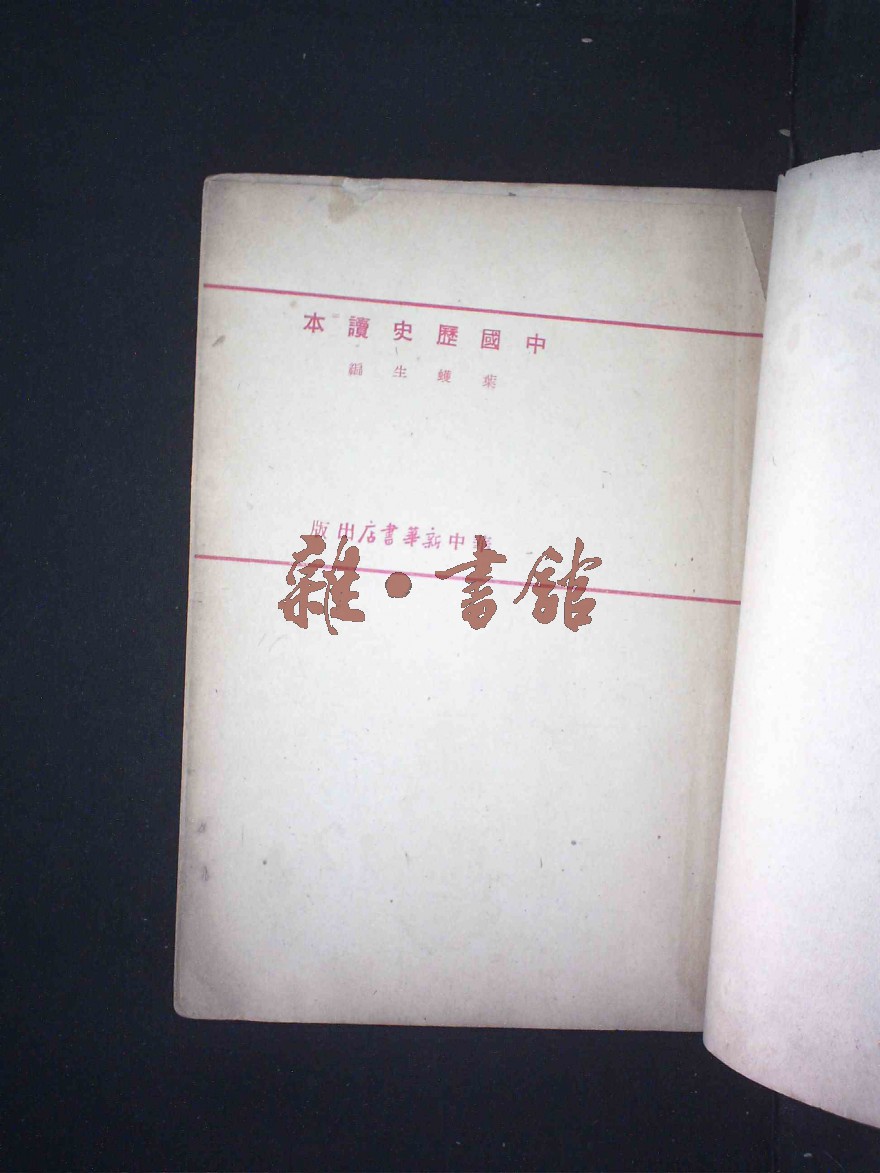 中國歷史讀本
葉蠖生編
華中新華書店出版
雜·書館